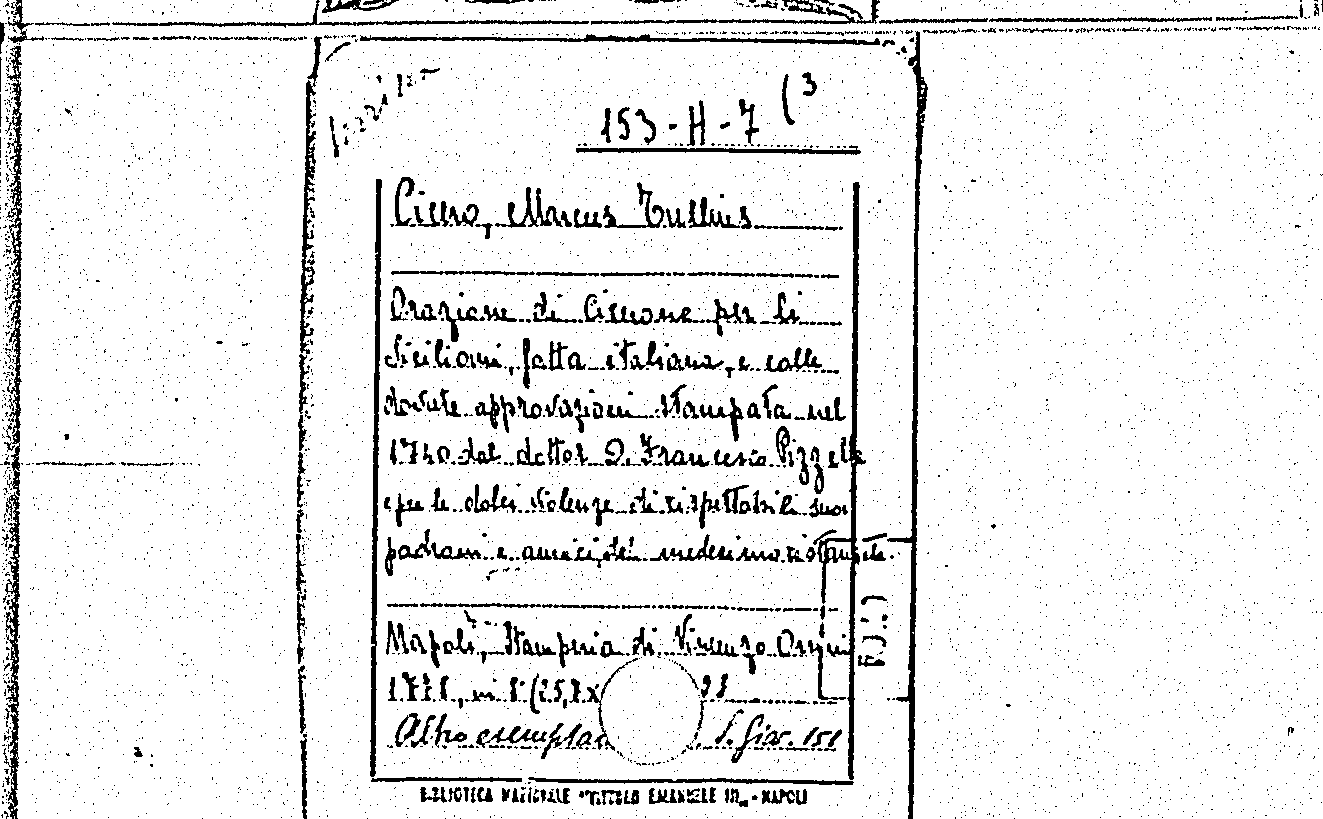 153-H-7 (3
Cicero, Marcus Tullius
Orazione di Cicerone per li
Siciliani, fatta italiana, e colle
dovute approvazioni stampata nel
1740 dal dottor D. Francesco Pizzella
e per le dolci violenze di rispettabili suoi
padroni e amici, dal medesimo ristampata.
Napoli, Stamperia di Vincenzo Orsini
1778, in 8° (25,7x
Altro esemplar S. Giov. 151
BIBLIOTECA NAZIONALE "VITTORIO EMANUELE III" - NAPOLI